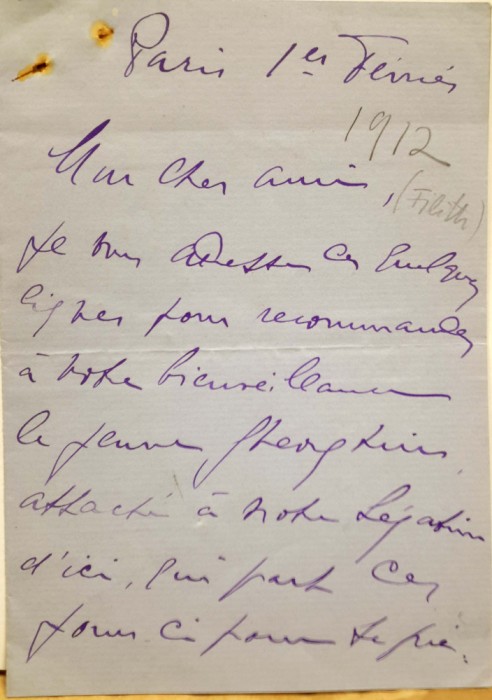 Paris 1er Février
1912
Mon cher ami,
Je vous adresse ces quelques
lignes pour recommander
à votre bienveillance
le jeune
attaché à notre Légation
d'ici, qui part ces
jours ci pour